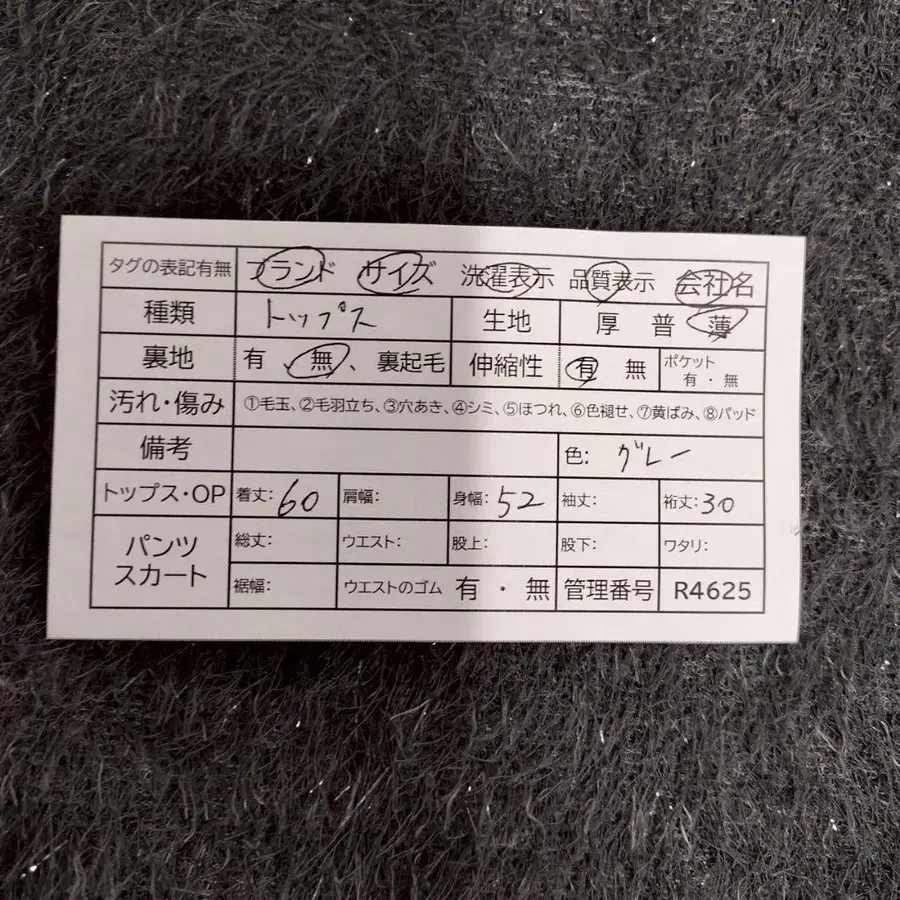 タグの表記有無 ブランド サイズ 洗濯表示 品質表示 会社名
種類 トップス 生地 厚 普 薄
裏地 有 無、裏起毛 伸縮性 有 無 ポケット 有・無
汚れ・傷み ①毛玉、②毛羽立ち、③穴あき、④シミ、⑤ほつれ、⑥色褪せ、⑦黄ばみ、⑧パッド
備考 色: グレー
トップス・OP 着丈: 60 肩幅: 身幅: 52 袖丈: 裄丈: 30
パンツ スカート 総丈: ウエスト: 股上: 股下: ワタリ:
裾幅: ウエストのゴム 有・無 管理番号 R4625